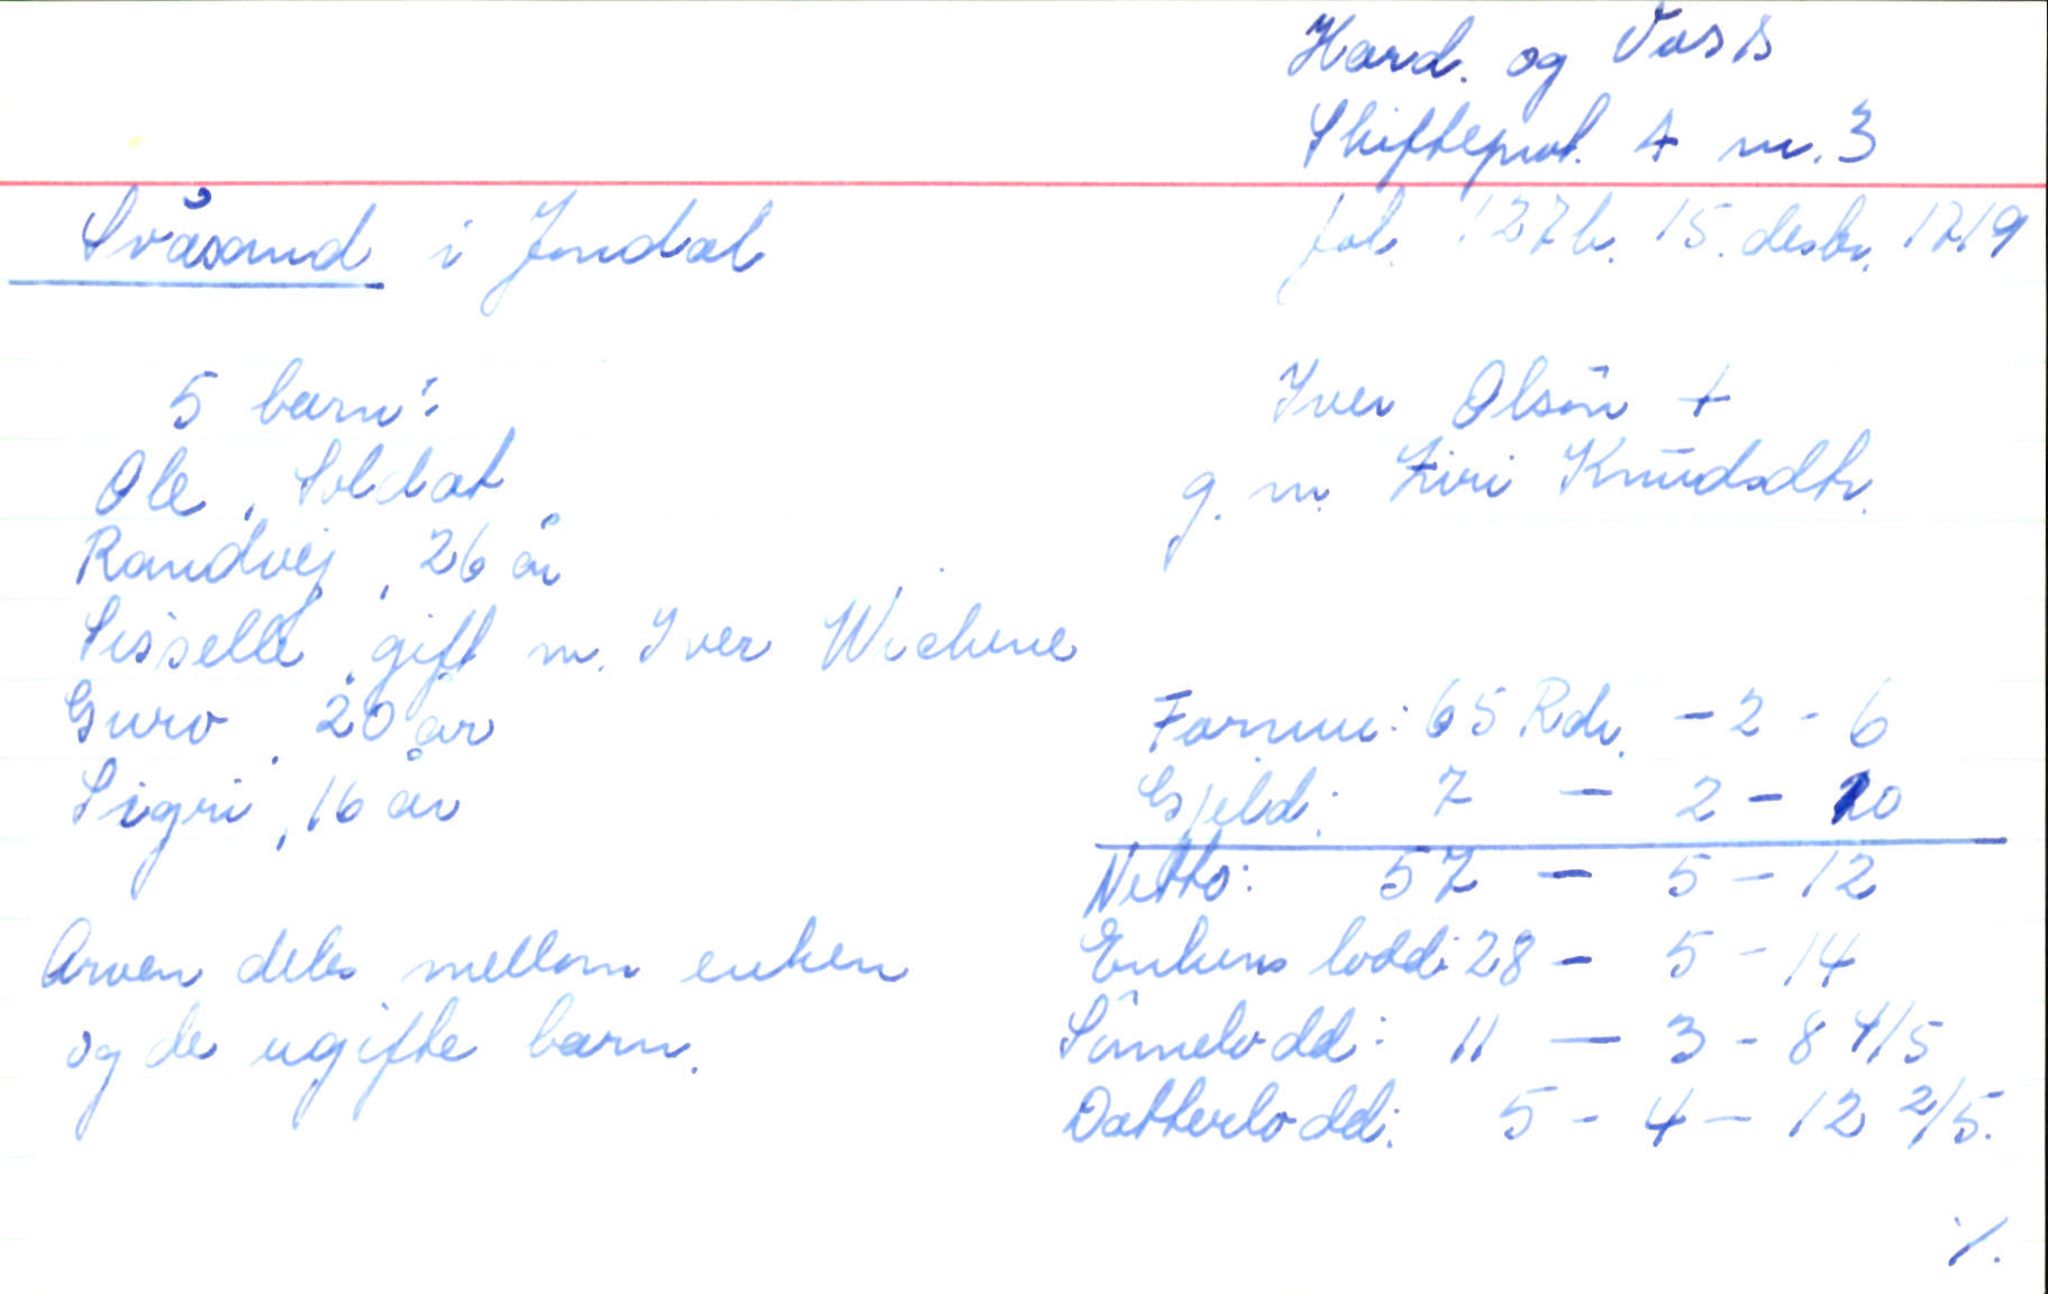 Hard. og Voss
Skifteprot. A nr. 3
fol. 127b. 15. desbr. 1719
Svåsand i Jondal
5 barn:
Ole, Soldat
Randvej, 26 år
Sisselle, gift m. Iver Wichene
Guro, 20 år
Sigri, 16 år
Arven deles mellom enken
og de ugifte barn.
Iver Olsön +
g. m. Ziri Knudsdtr.
Formue: 65 Rdr. - 2 - 6
Gjeld: 7 - 2 - 10
Netto: 57 - 5 - 12
Enkens lodd: 28 - 5 - 14
Sönnelodd: 11 - 3 - 8 4/5
Datterlodd: 5 - 4 - 12 2/5.
./.